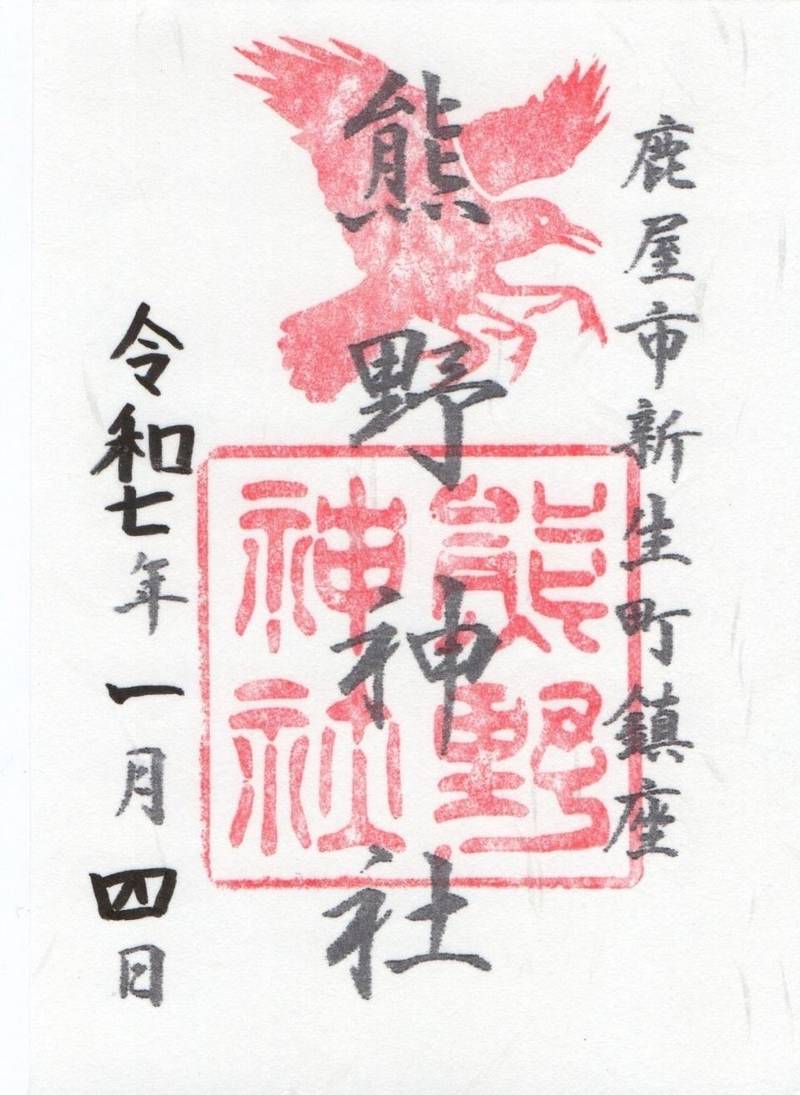 鹿屋市新生町鎮座
熊野神社
熊野
神社
令和七年一月四日